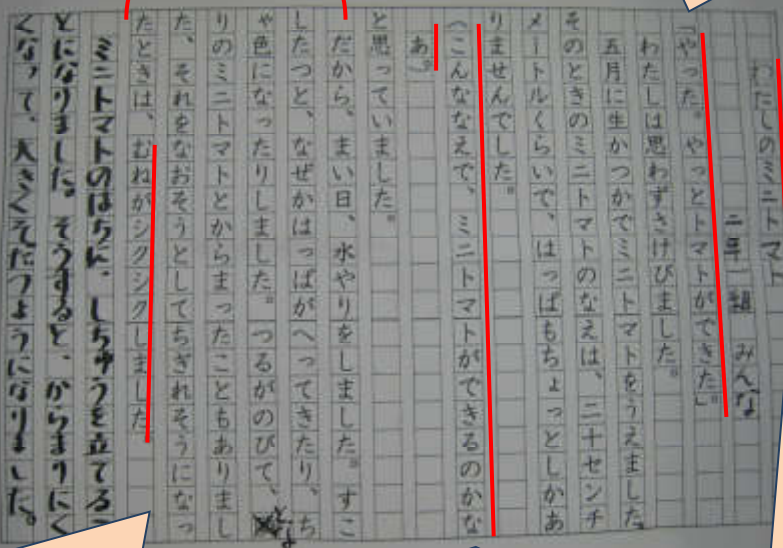 わたしのミニトマト
二年一組 みんな
「やった。やっとトマトができた」。
わたしは思わずさけびました。
五月に生かつかでミニトマトをうえました。
そのときのミニトマトのなえは、二十センチ
メートルくらいで、はっぱもちょっとしかあ
りませんでした。
(こんななえで、ミニトマトができるのかな
あ。)
と思っていました。
だから、まい日、水やりをしました。すこ
したつと、なぜかはっぱがへってきたり、ち
ゃ色になったりしました。つるがのびて、とな
りのミニトマトとからまったこともありまし
た。それをなおそうとしてちぎれそうになっ
たときは、むねがシクシクしました。
ミニトマトのはちに、しちゅうを立てるこ
とになりました。そうすると、からまりにく
くなって、大きくそだつようになりました。